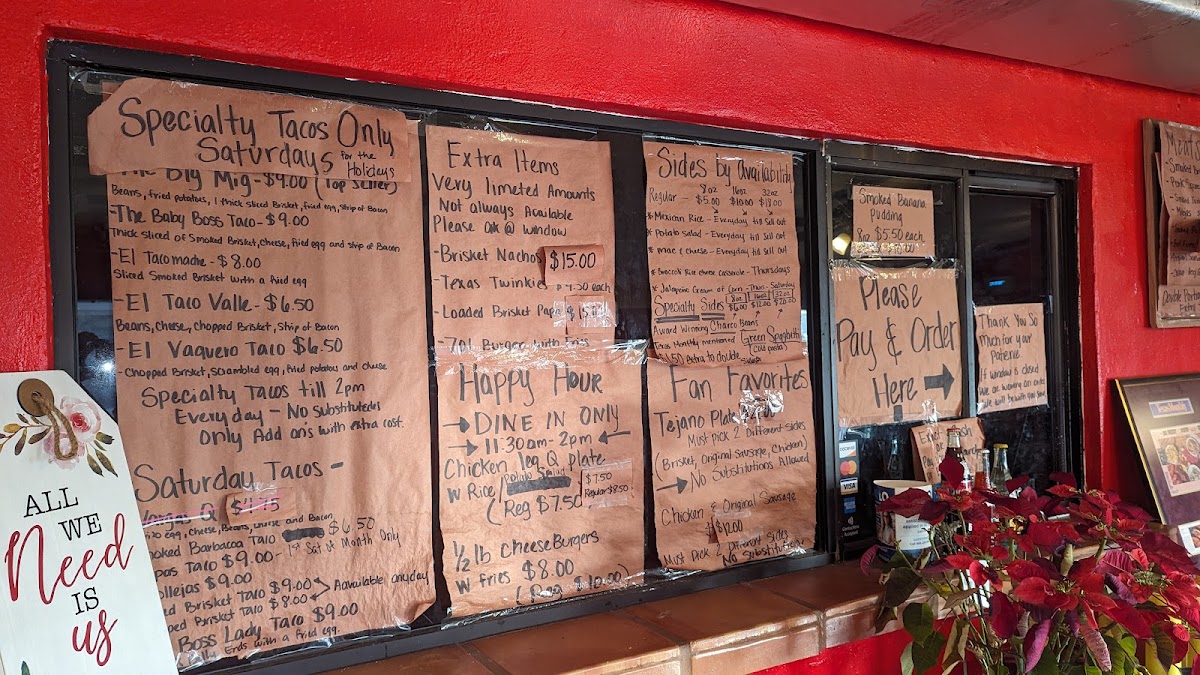 Specialty Tacos Only
Saturdays for the Holidays
The Big Mig - $9.00 (Top Seller)
Beans, fried potatoes, 1 thick sliced Brisket, fried egg, strip of Bacon
-The Baby Boss Taco - $9.00
Thick sliced of Smoked Brisket, Cheese, fried egg and strip of Bacon
-El Tacomache - $8.00
Sliced Smoked Brisket with a fried egg
-El Taco Valle - $6.50
Beans, Cheese, Chopped Brisket, Strip of Bacon
-El Vaquero Taco $6.50
-Chopped Brisket, Scrambled egg, fried potatoes and cheese
Specialty Tacos till 2pm
Everyday - No Substitutes
Only Add on's with extra cost.
Saturday Tacos -
Vargas Q
egg, cheese, Beans, and Bacon
Smoked Barbacoa Taco $6.50
$9.00 - 1st Sat of Month Only
$9.00
Brisket Taco $9.00
Brisket Taco $8.00 Available anyday
Boss Lady Taco $9.00
Ends with a fried egg
Extra Items
Very limeted Amounts
Not always Available
Please ask @ window
-Brisket Nachos $15.00
-Texas Twinkie 4.50 each
-Loaded Brisket Papa
Happy Hour
→ DINE IN ONLY
→ 11:30am - 2pm ←
Chicken leg Q Plate
w Rice / Potato Salad $7.50
Regular $8.50
(Reg $7.50)
1/2 lb Cheese Burgers
w fries $8.00
(Reg 10.00)
Sides by availability
8oz 16oz 32oz
Regular - $5.00 $10.00 $18.00
* Mexican Rice - Everyday till Sell out
* Potato salad - Everyday till Sell out
* mac & cheese - Everyday till Sell out
* Broccoli Rice cheese casserole - Thursdays
* Jalapeño Cream of Corn - Thur - Saturday
Specialty Sides 8oz 16oz 32oz
$6.00 $12.00 $20.00
Award Winning Charco Beans
Texas Monthly mentioned Green Spaghetti
(cold pasta)
$1.50 extra to double
Fan Favorites
Tejano Plate
Must pick 2 Different sides
(Brisket, Original Sausage, Chicken)
→ No Substitutions Allowed
Chicken & Original Sausage
$12.00
Must Pick 2 Different Sides
No Substitutions
Smoked Banana
Pudding
8oz $5.50 each
Please
Pay & Order
Here →
Thank You So
Much for your
Patience
If window is closed
We are working on orders
We will be with you soon
DISCOVER
VISA
ALL
WE
Need
IS
us